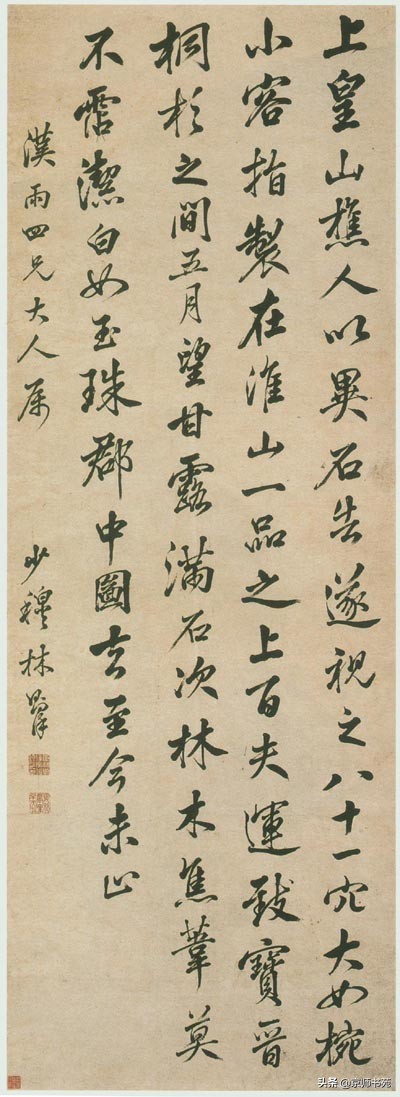 上皇山樵人以異石告遂視之八十一穴大如椀
小容指製在淮山一品之上百夫運致寶晉
桐杉之間五月望甘露滿石次林木焦葦莫
不霑潔白如玉珠郡中圖去至今未止
漢雨四兄大人屬
少穆林則徐
头条 @京师书苑